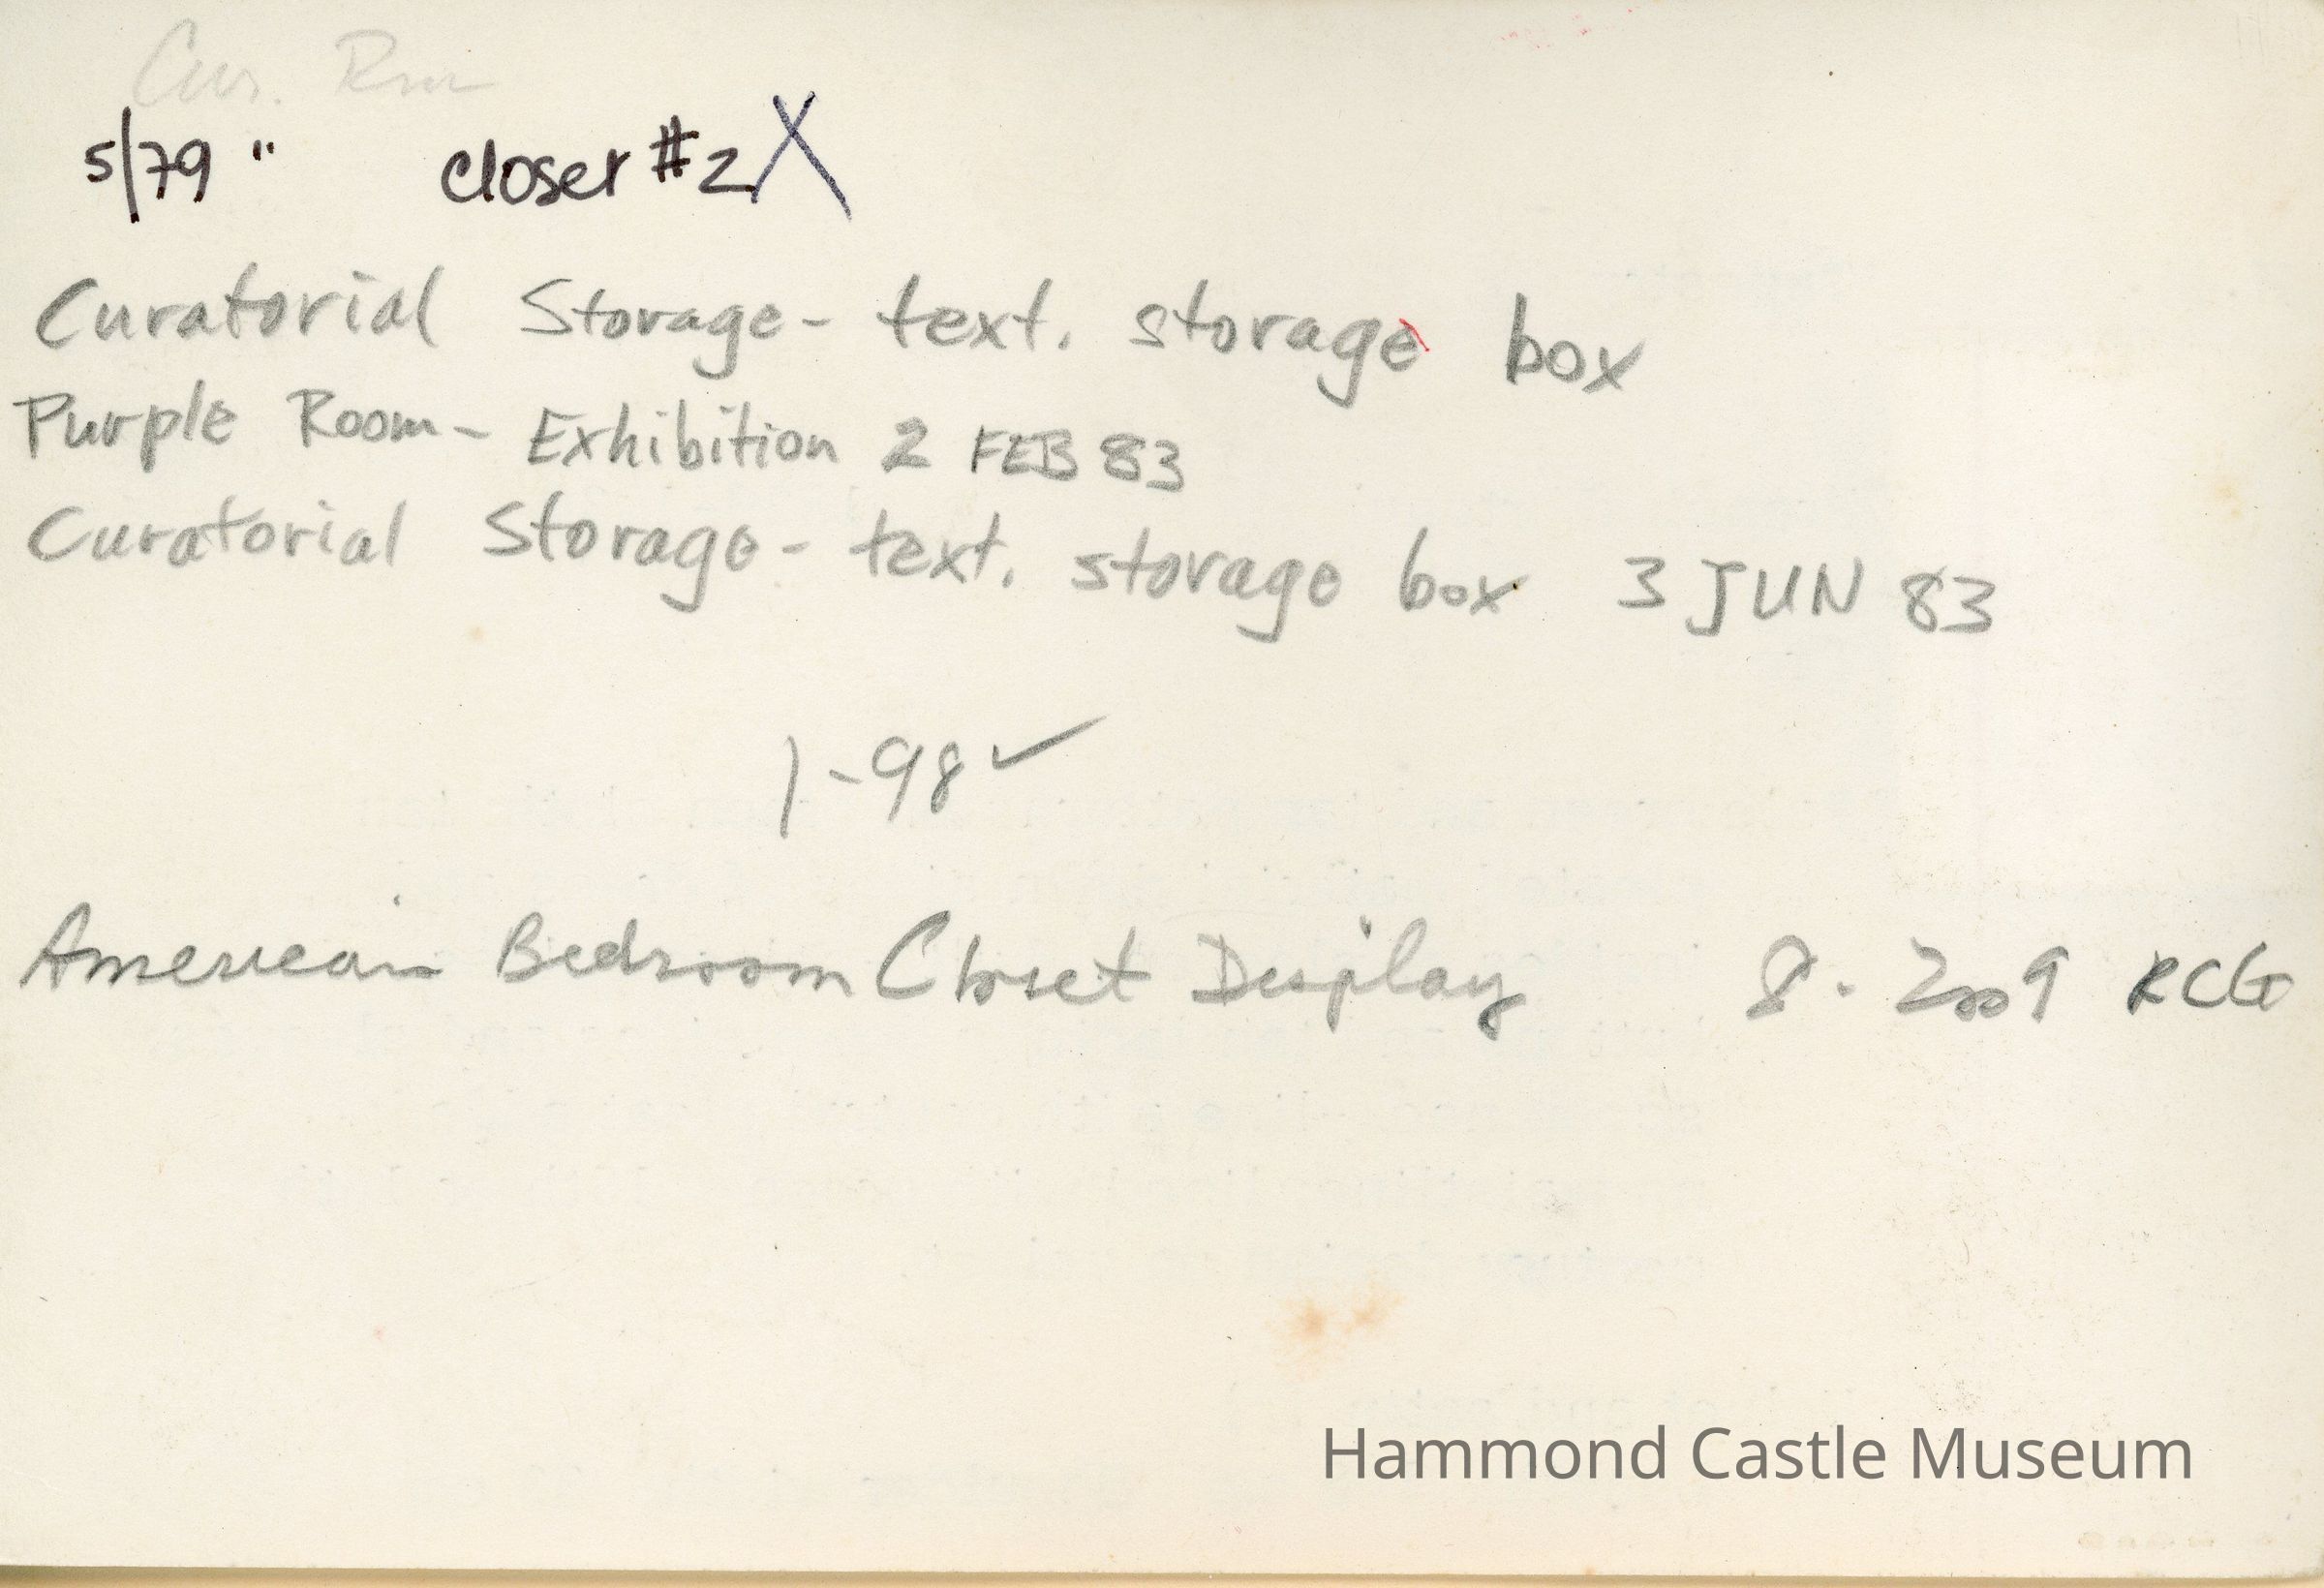 Cur. Rm
5/79 " closer #2 X
Curatorial Storage - text. storage box
Purple Room - Exhibition 2 FEB 83
Curatorial Storage - text. storage box 3 JUN 83
1-98 ✓
American Bedroom Closet Display 8. 2009 RCG
Hammond Castle Museum